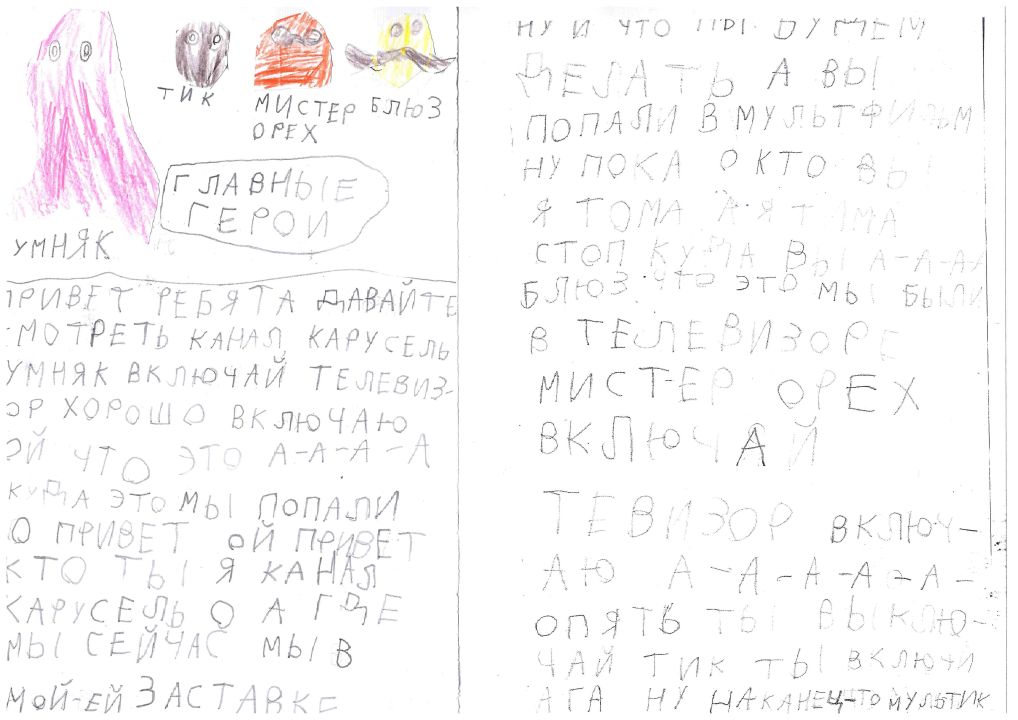 ТИК
МИСТЕР
ОРЕХ
БЛЮЗ
ГЛАВНЫЕ
ГЕРОИ
УМНЯК
ПРИВЕТ РЕБЯТА ДАВАЙТЕ
СМОТРЕТЬ КАНАЛ КАРУСЕЛЬ
УМНЯК ВКЛЮЧАЙ ТЕЛЕВИЗ-
ОР ХОРОШО ВКЛЮЧАЮ
ОЙ ЧТО ЭТО А-А-А-А
КУДА ЭТО МЫ ПОПАЛИ
О ПРИВЕТ ОЙ ПРИВЕТ
КТО ТЫ Я КАНАЛ
КАРУСЕЛЬ О А ГДЕ
МЫ СЕЙЧАС МЫ В
МОЙ-ЕЙ ЗАСТАВКЕ
НУ И ЧТО МЫ. ДУМЕМ
ДЕЛАТЬ А ВЫ
ПОПАЛИ В МУЛЬТФИЛЬМ
НУ ПОКА О КТО ВЫ
Я ТОМА А Я ТИМА
СТОП КУДА ВЫ А-А-А-
БЛЮЗ. ЧТО ЭТО МЫ БЫЛИ
В ТЕЛЕВИЗОРЕ
МИСТ-ЕР ОРЕХ
ВКЛЮЧАЙ
ТЕВИЗОР ВКЛЮЧ-
АЮ А-А-А-А-А-
ОПЯТЬ ТЫ ВЫКЛЮ-
ЧАЙ ТИК ТЫ ВКЛЮЧИ
АГА НУ НАКАНЕЦ-ТО МУЛЬТИК